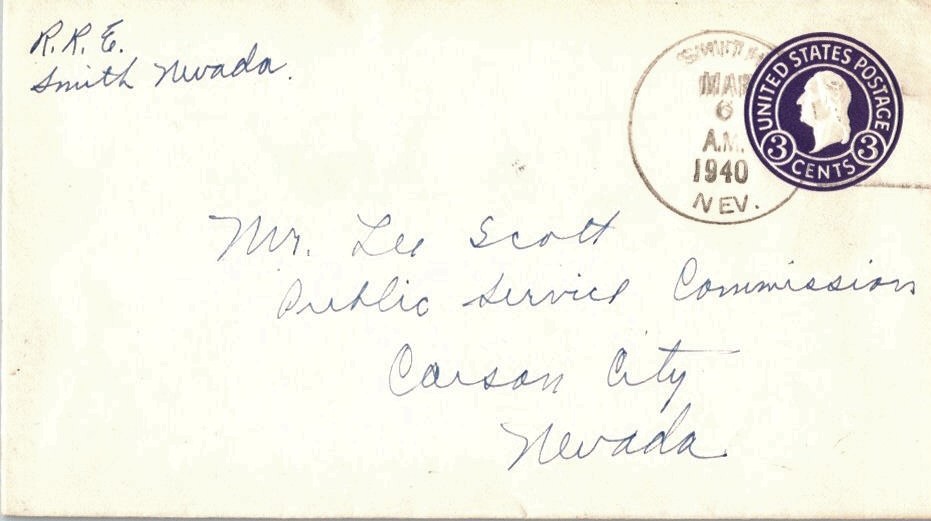 R.R.E.
Smith Nevada.
SMITH
MAR
6
A.M.
1940
NEV.
UNITED STATES POSTAGE
3 CENTS 3
Mr. Lee Scott
Public Service Commission
Carson City
Nevada